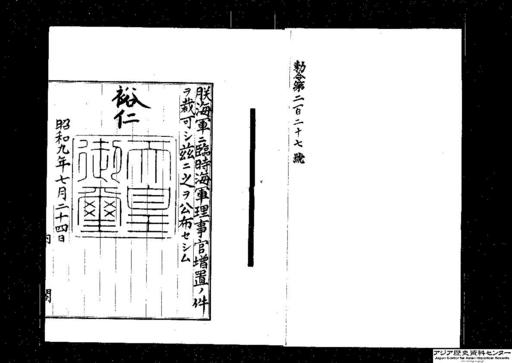 勅令第二百二十七號
朕海軍ニ臨時海軍理事官增置ノ件
ヲ裁可シ茲ニ之ヲ公布セシム
裕仁
天皇御璽
昭和九年七月二十四日
内閣
アジア歴史資料センター
Japan Center for Asian Historical Records